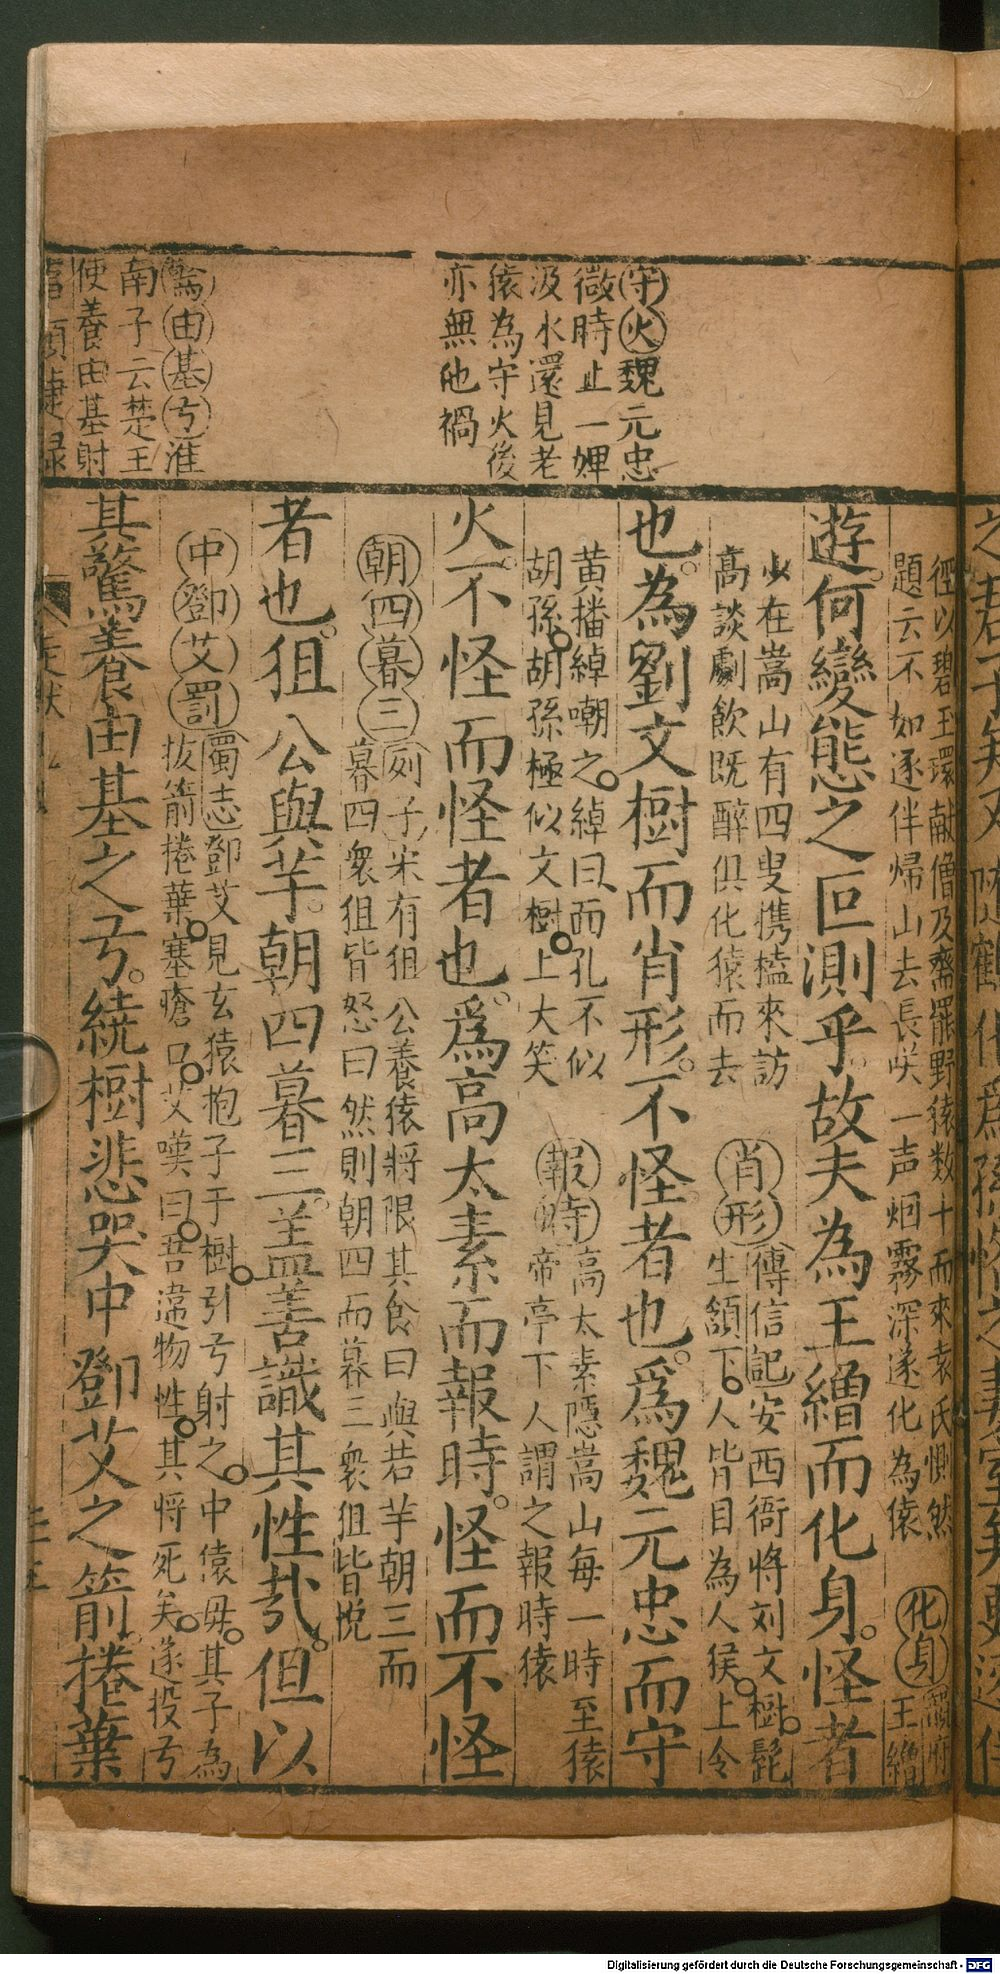 守火魏元忠
微時止一婢
汲水還見老
猿為守火後
亦無他禍
由基弓淮
南子云楚王
使養由基射
徑以碧玉環献僧及齋罷野猿数十而來袁氏惻然
題云不如逐伴帰山去長咲一声烟霧深遂化為猿
化身
王繒
遊何變態之叵測乎故夫為王繒而化身怪者
少在嵩山有四叟携榼來訪
高談劇飲既醉俱化猿而去
肖形
傅信記安西衙将刘文樹髭
生頷下人皆目為人猴上令
也為劉文樹而肖形不怪者也爲魏元忠而守
黄播綽嘲之綽曰面孔不似
胡孫胡孫極似文樹上大笑
報時
高太素隱嵩山每一時至猿
帝亭下人謂之報時猿
火不怪而怪者也爲高太素而報時怪而不怪
朝四暮三
列子宋有狙公養猿将限其食曰與若芧朝三而
暮四衆狙皆怒曰然則朝四而暮三衆狙皆悅
者也狙公與芧朝四暮三盖善識其性哉但以
中鄧艾罰
蜀志鄧艾見玄猿抱子于樹引弓射之中猿毋其子為
拔箭捲葉塞瘡口艾嘆曰吾違物性其将死矣遂投弓
其驚養由基之弓繞樹悲哭中鄧艾之箭捲葉
Digitalisierung gefördert durch die Deutsche Forschungsgemeinschaft - DFG